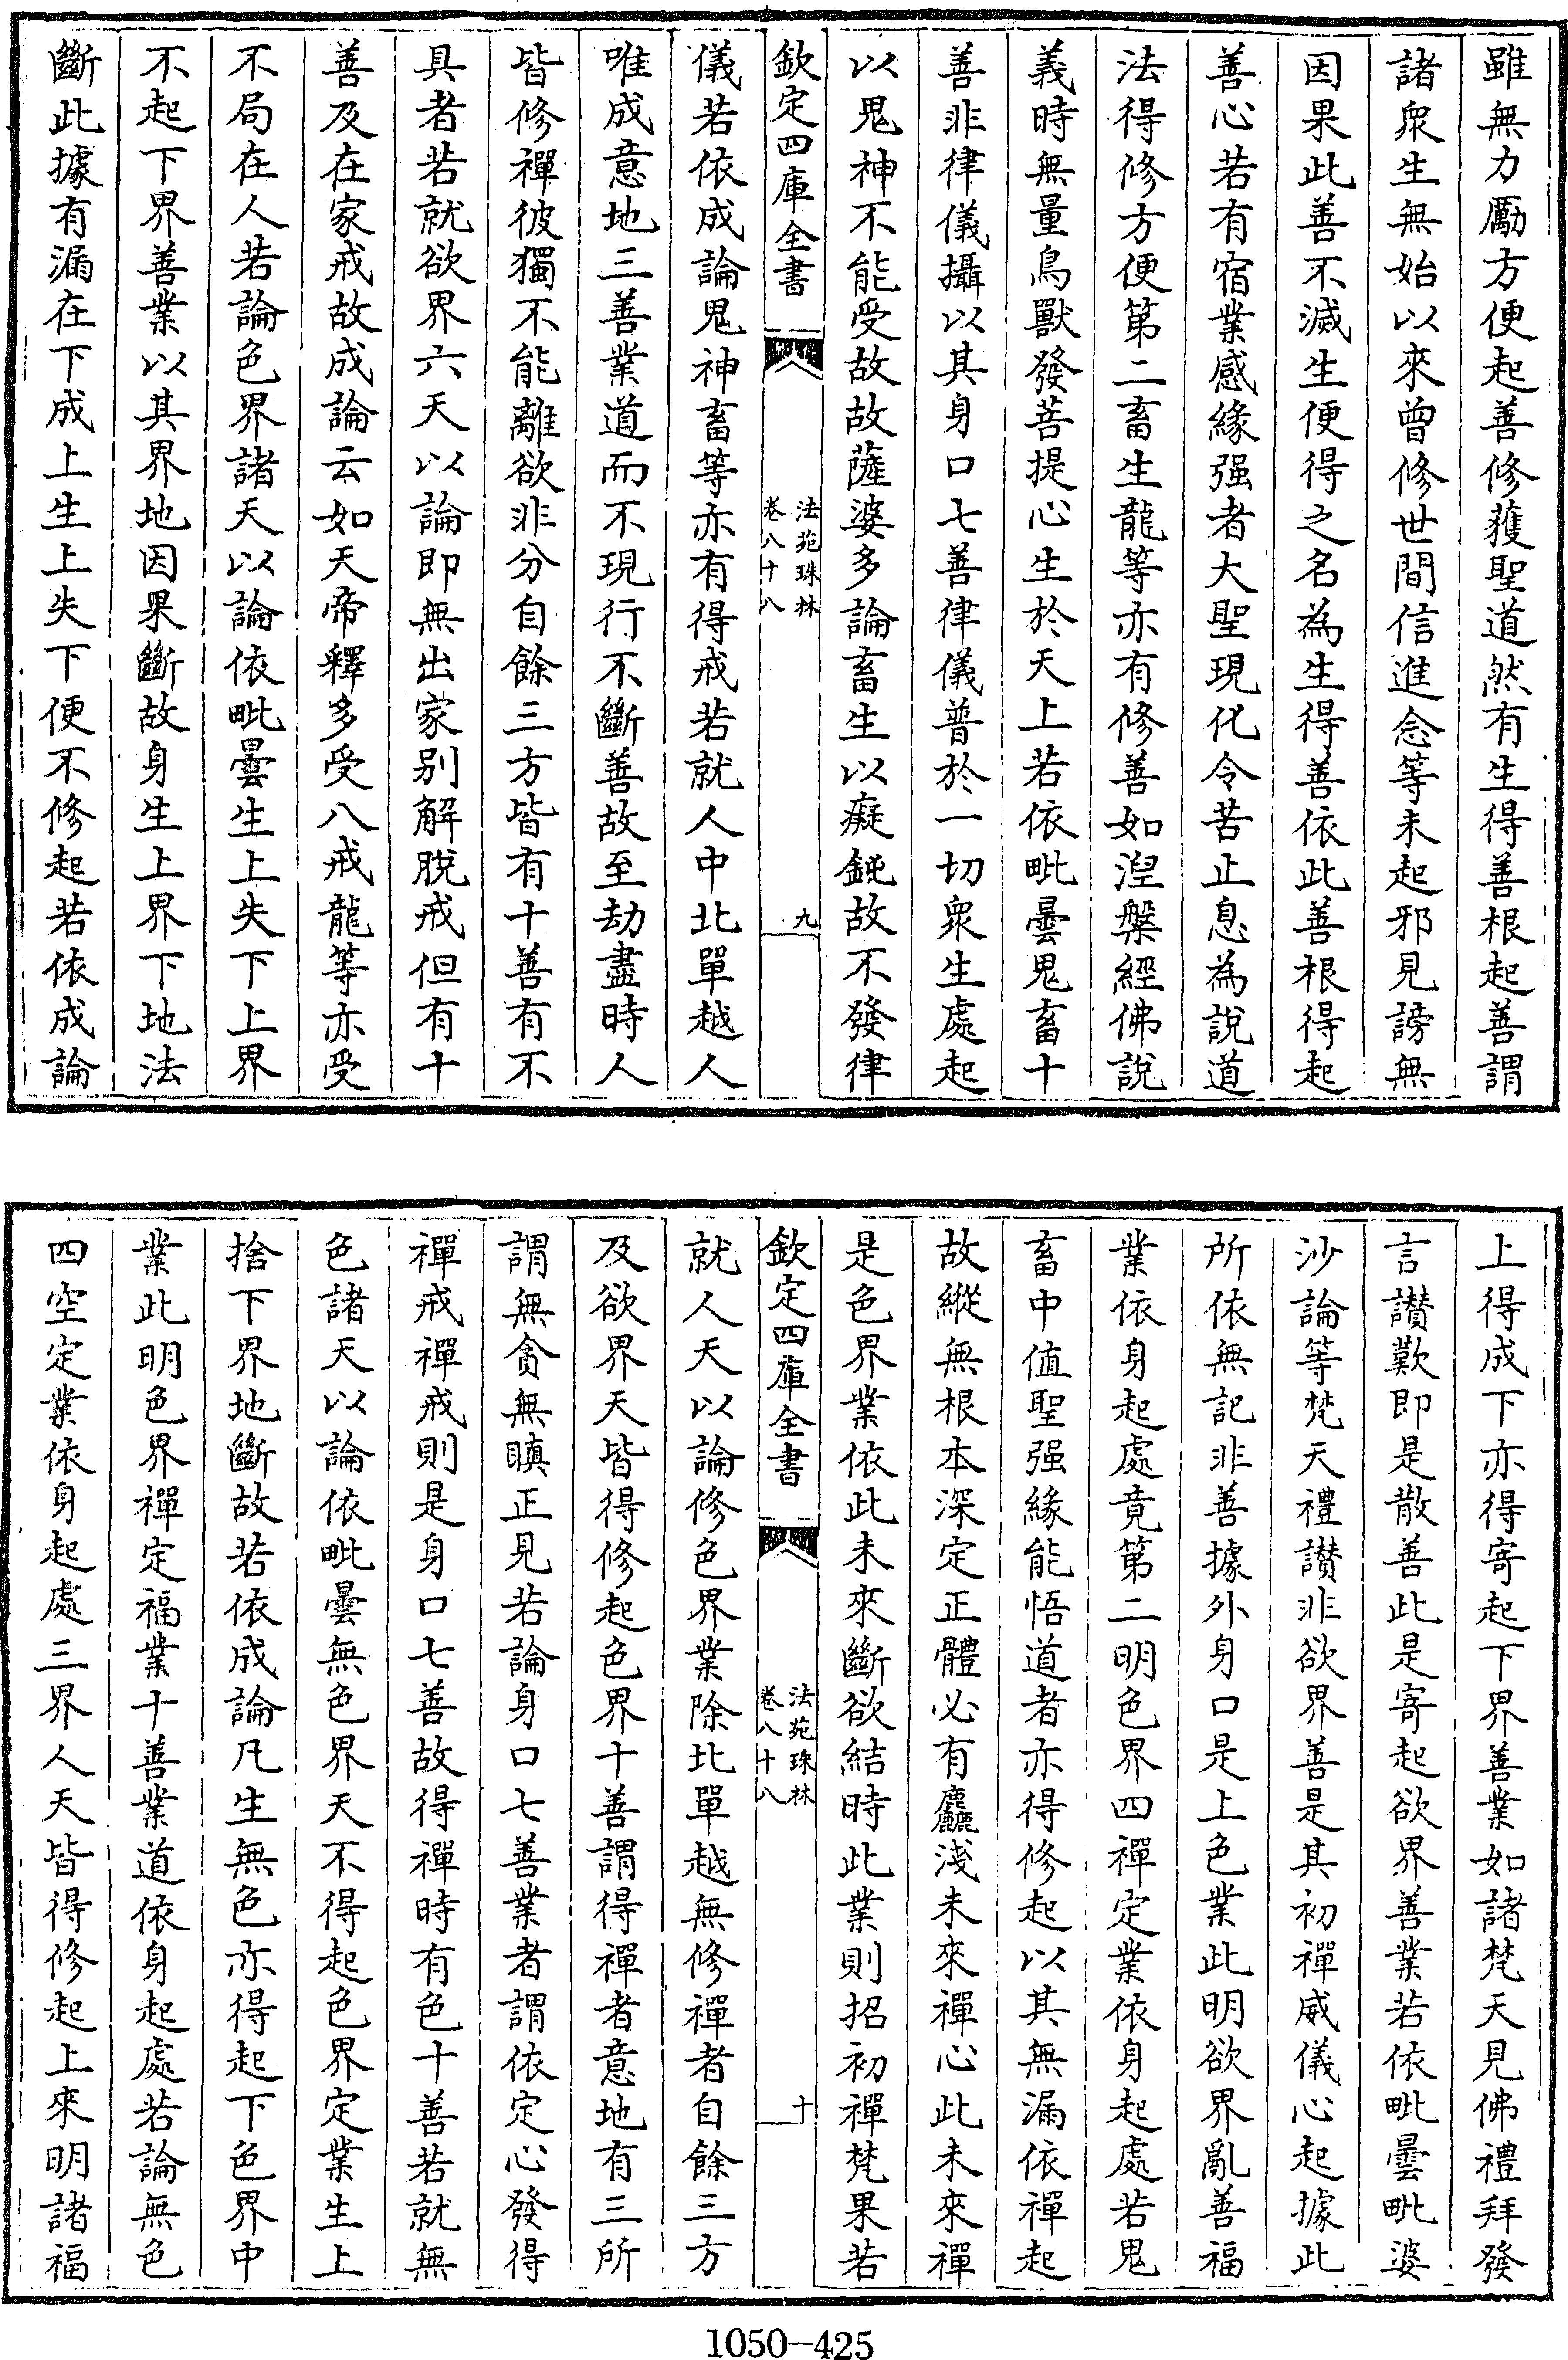 雖無力勵方便起善修獲聖道然有生得善根起善謂
諸衆生無始以來曾修世間信進念等未起邪見謗無
因果此善不滅生便得之名為生得善依此善根得起
善心若有宿業感緣强者大聖現化令苦止息為說道
法得修方便第二畜生龍等亦有修善如湼槃經佛說
義時無量鳥獸發菩提心生於天上若依毗曇鬼畜十
善非律儀攝以其身口七善律儀普於一切衆生處起
以鬼神不能受故故薩婆多論畜生以癡鈍故不發律
欽定四庫全書
法苑珠林
卷八十八
九
儀若依成論鬼神畜等亦有得戒若就人中北單越人
唯成意地三善業道而不現行不斷善故至劫盡時人
皆修禪彼獨不能離欲非分自餘三方皆有十善有不
具者若就欲界六天以論即無出家别解脫戒但有十
善及在家戒故成論云如天帝釋多受八戒龍等亦受
不局在人若論色界諸天以論依毗曇生上失下上界
不起下界善業以其界地因果斷故身生上界下地法
斷此據有漏在下成上生上失下便不修起若依成論
上得成下亦得寄起下界善業如諸梵天見佛禮拜發
言讃歎即是散善此是寄起欲界善業若依毗曇毗婆
沙論等梵天禮讃非欲界善是其初禪威儀心起據此
所依無記非善據外身口是上色業此明欲界亂善福
業依身起處竟第二明色界四禪定業依身起處若鬼
畜中值聖强緣能悟道者亦得修起以其無漏依禪起
故縱無根本深定正體必有麤淺未來禪心此未來禪
是色界業依此未來斷欲結時此業則招初禪梵果若
欽定四庫全書
法苑珠林
卷八十八
十
就人天以論修色界業除北單越無修禪者自餘三方
及欲界天皆得修起色界十善謂得禪者意地有三所
謂無貪無瞋正見若論身口七善業者謂依定心發得
禪戒禪戒則是身口七善故得禪時有色十善若就無
色諸天以論依毗曇無色界天不得起色界定業生上
捨下界地斷故若依成論凡生無色亦得起下色界中
業此明色界禪定福業十善業道依身起處若論無色
四空定業依身起處三界人天皆得修起上來明諸福
1050-425